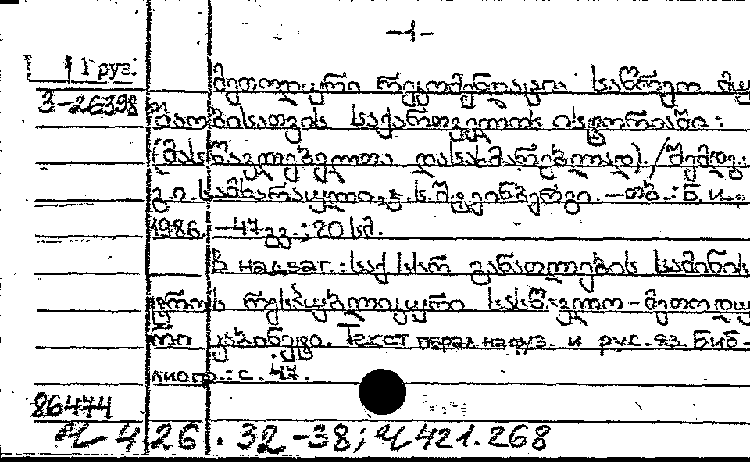 -1-
Груз.
3-26398
მეთოდიკური რეკომენდაცია საწრეო მუ
შაობისათვის საქართველოს ისტორიაში:
(მასწავლებელთა დასახმარებლად) / შემდგ.:
გ.ი. სამხარაული, გ.ს. შველიძე. —თბ.: Б.и.,
1986. —47გვ.; 20 სმ.
В надзаг.: საქ სსრ განათლების სამინის
ტრო, რესპუბლიკური სასწავლო-მეთოდუ
რი კაბინეტი. Текст парал. на груз. и рус. яз. Биб-
лиогр.: с. 47.
86474
Ч 426.32-38; Ч421.268